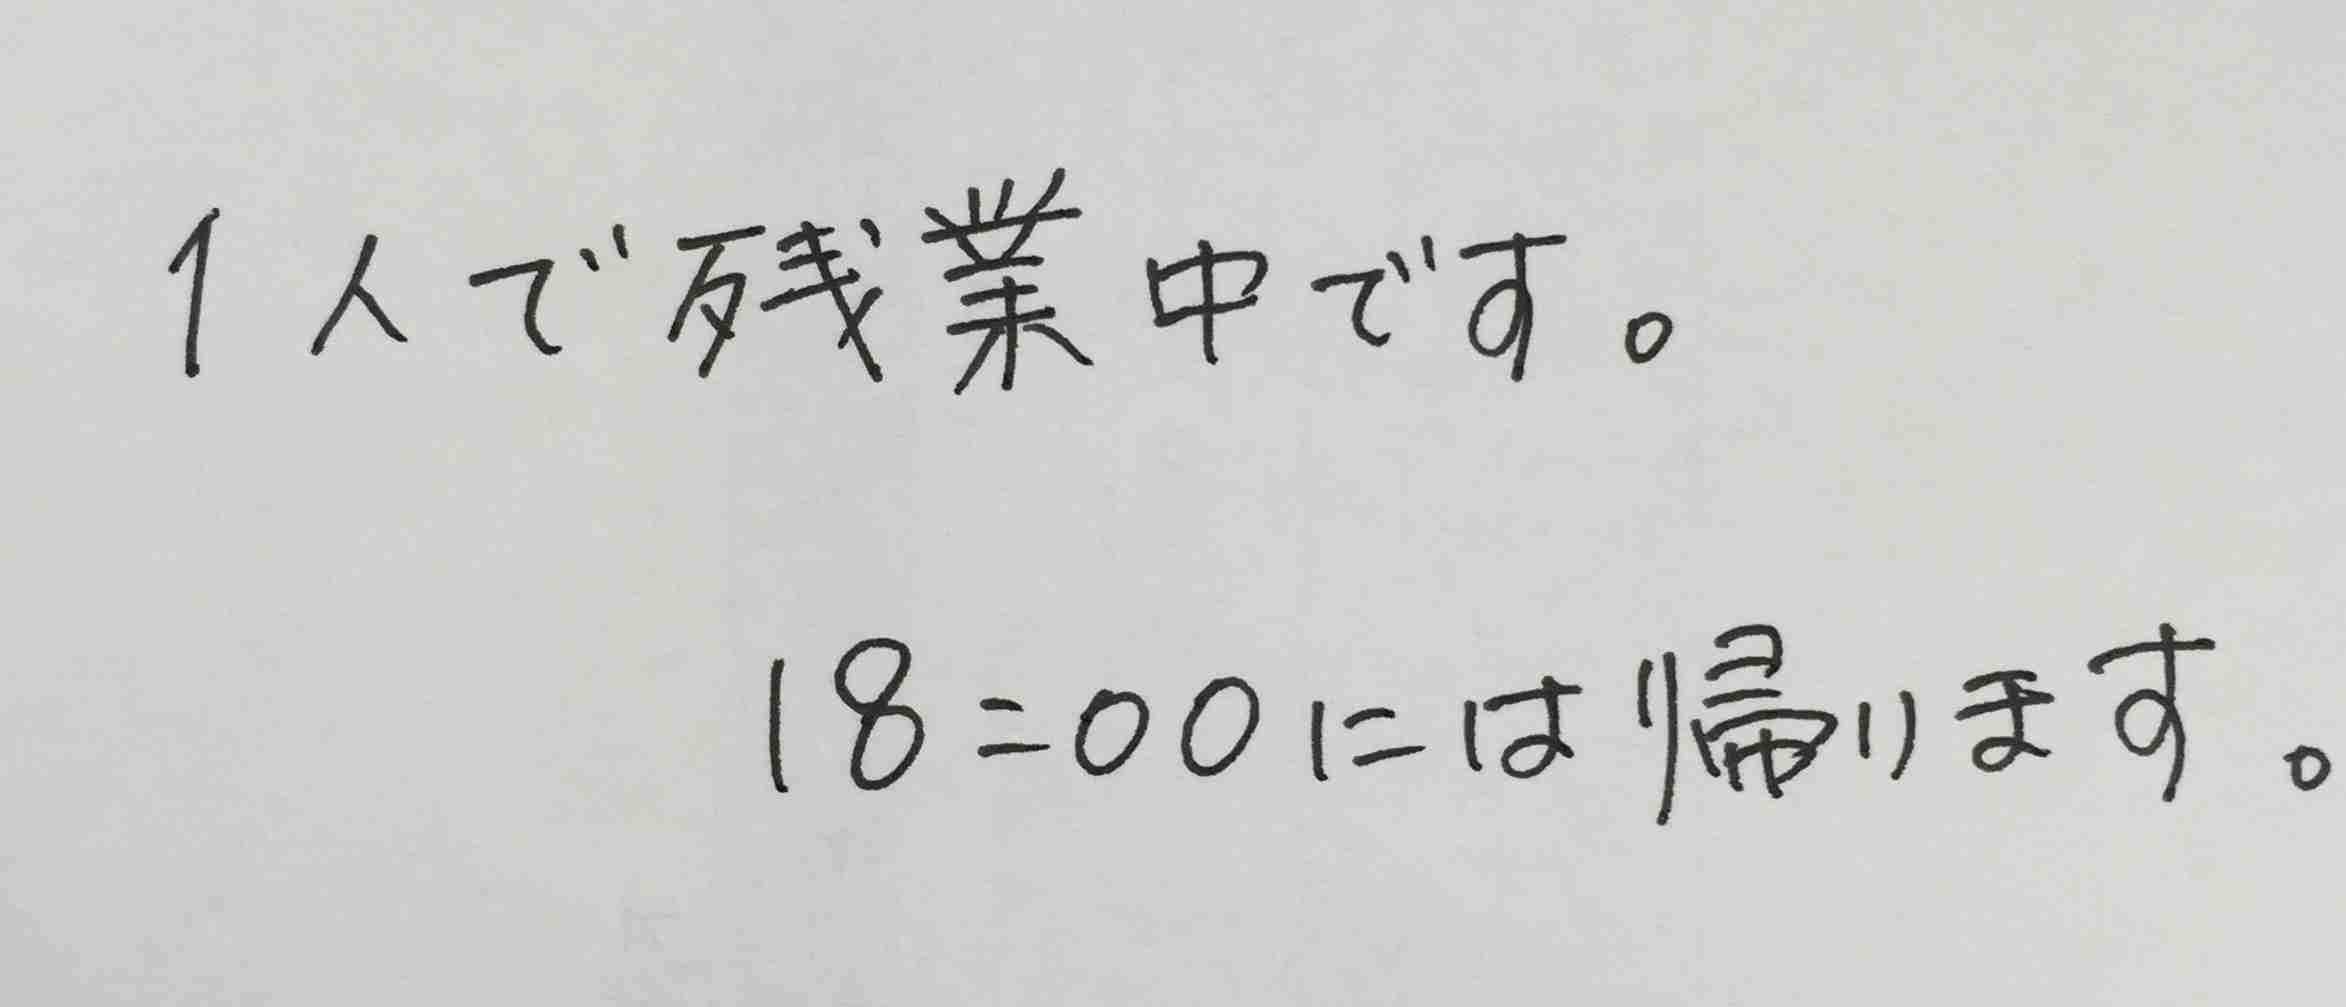 1人で残業中です。
18:00には帰ります。